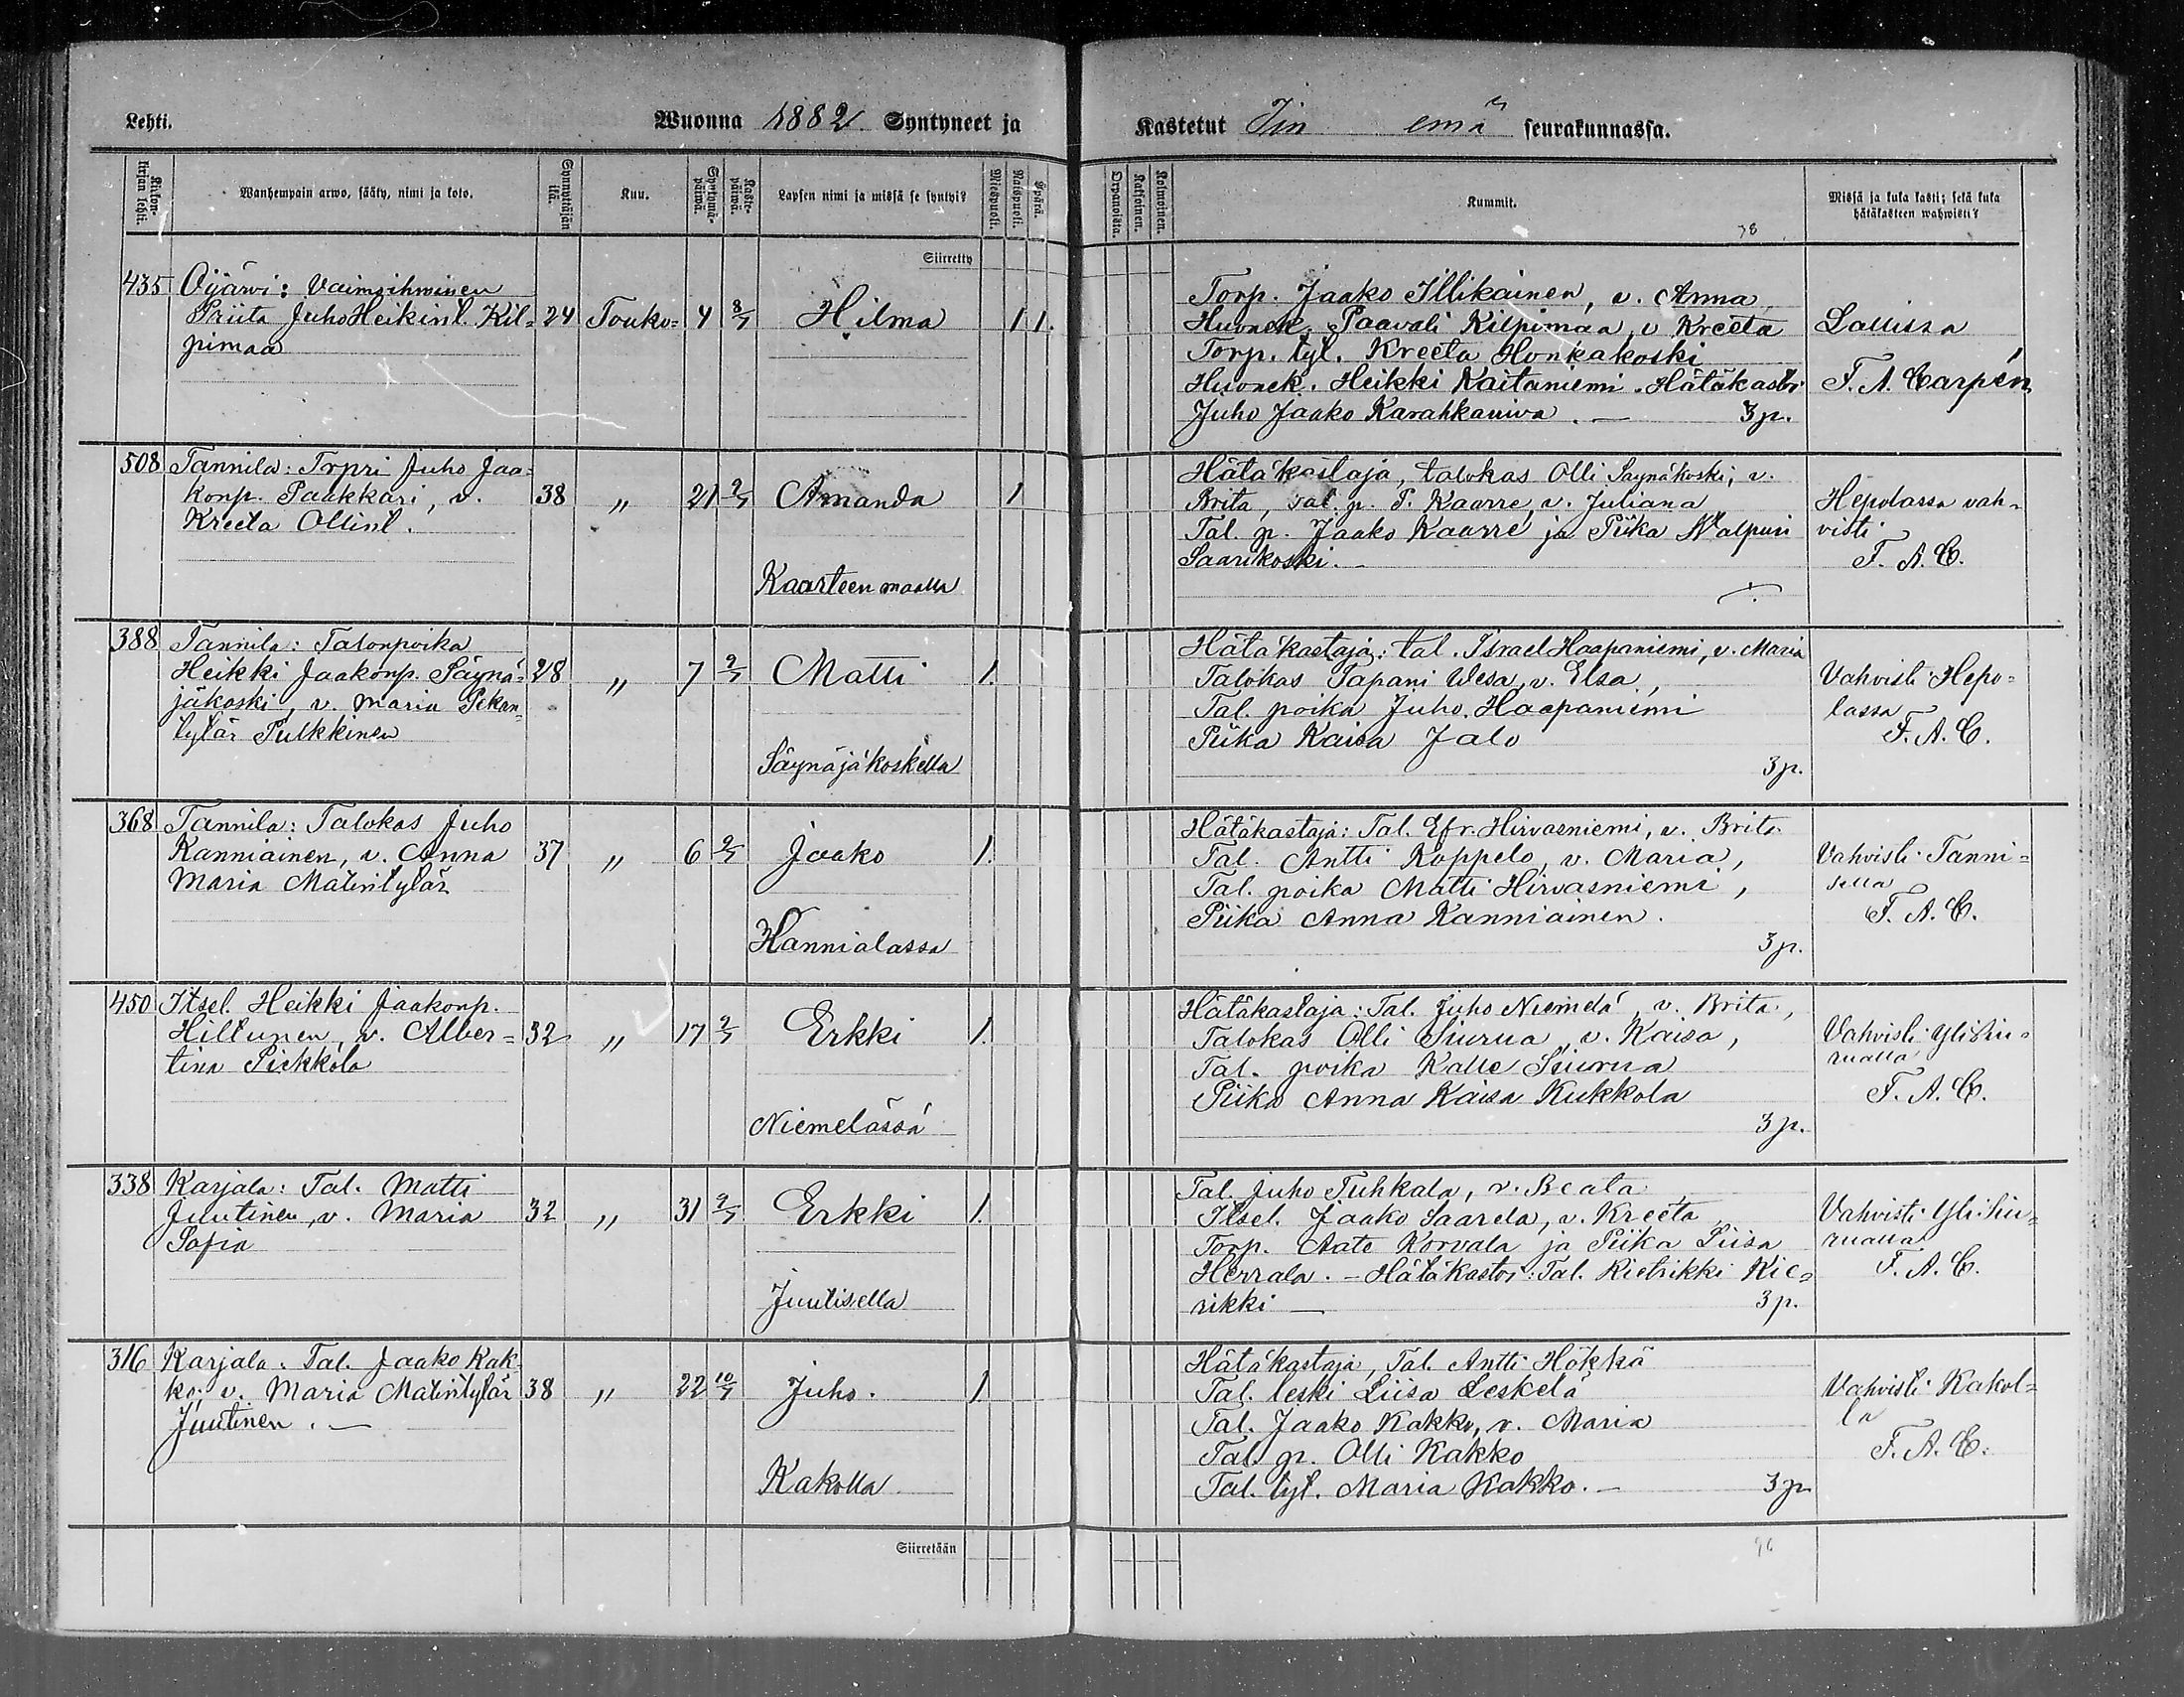 Lehti.
Wuonna 1882 Syntyneet ja
Kastetut Iin emä seurakunnassa.
Kirkon-kirjan lehti.
Wanhempain arwo, sääty, nimi ja koto.
Synnyttäjän ikä.
Kuu.
Syntymä-päiwä.
Kaste-päiwä.
Lapsen nimi ja missä se syntyi?
Miespuoli.
Waimopuoli.
Äpärä.
Orpanoista.
Kaksoinen.
Kolmoinen.
Kummit.
Missä ja kuka kasti; sekä kuka
hätäkasteen wahwisti?
78
Siirretty
435 Oijärvi: Vaimoihminen
Priita Juho Heikint. Kil= 24 Touko= 4 8/5 Hilma 1 1.
pimaa
Torp. Jaako Illikainen, v. Anna
Huonek. Paavali Kilpimaa, v Kreeta
Torp. tyt. Kreeta Honkakoski
Huonek. Heikki Kaitaniemi. Hätäkast:
Juho Jaako Karahkaniva. — 3 p.
Lallissa
F. A. Carpén
508 Tannila: Torpri Juho Jaa=
konp. Paakkari, v. 38 „ 21 9/5 Amanda 1
Kreeta Ollint.
Kaarteen maalla
Hätäkastaja, talokas Olli Saynäkoski, v.
Brita, tal. p. P. Kaarre, v. Juliana
Tal. p. Jaako Kaarre ja Piika Walpuri
Saarikoski. —
Hepolassa vah=
visti
F. A. C.
388 Tannila: Talonpoika
Heikki Jaakonp. Säynä= 28 „ 7 9/5 Matti 1.
jäkoski, v. Maria Pekan=
tytär Pulkkinen
Säynäjäkoskella
Hätäkastaja: tal. Israel Haapaniemi, v. Maria
Talokas Tapani Wesa, v. Elsa,
Tal. poika Juho Haapaniemi
Piika Kaisa Jalo
3 p.
Vahvisti Hepo=
lassa
F. A. C.
368 Tannila: Talokas Juho
Kanniainen, v. Anna 37 „ 6 9/5 Jaako 1.
Maria Matintytär
Kannialassa
Hätäkastaja: Tal. Efr. Hirvasniemi, v. Brita
Tal. Antti Koppelo, v. Maria,
Tal. poika Matti Hirvasniemi,
Piika Anna Kanniainen.
3 p.
Vahvisti Tanni=
lella
F. A. C.
450 Itsel. Heikki Jaakonp.
Hiltunen, v. Alber= 32 „ 17 9/5 Erkki 1.
tina Pirkkola
Niemelässä
Hätäkastaja: Tal. Juho Niemelä, v. Brita,
Talokas Olli Siurua, v. Kaisa,
Tal. poika Kalle Siurua
Piika Anna Kaisa Kukkola
3 p.
Vahvisti Ylisiu=
rualla
F. A. C.
338 Karjala: Tal. Matti
Juutinen, v. Maria 32 „ 31 9/5 Erkki 1.
Sofia
Juutisella
Tal. Juho Tuhkala, v. Beata
Itsel. Jaako Saarela, v. Kreeta
Torp. Aate Korvala ja Piika Liisa
Herrala. — Hätäkastoi: Tal. Rietrikki Kie=
rikki — 3 p.
Vahvisti Yli Siu=
rualla
F. A. C.
316 Karjala. Tal. Jaako Kak=
ko, v. Maria Matintytär 38 „ 22 10/5 Juho. 1.
Juutinen. —
Kakolla
Hätäkastaja, Tal. Antti Hökkä
Tal. leski Liisa Leskelä
Tal. Jaako Kakko, v. Maria
Tal. p. Olli Kakko
Tal. tyt. Maria Kakko. — 3 p
Vahvisti Kakol=
la
F. A. C.
Siirretään